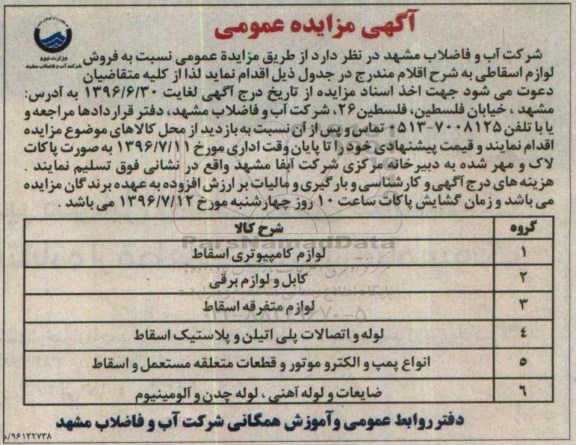 آگهی مزایده عمومی
وزارت نیرو
شرکت آب و فاضلاب مشهد
شرکت آب و فاضلاب مشهد در نظر دارد از طریق مزایدهٔ عمومی نسبت به فروش
لوازم اسقاطی به شرح اقلام مندرج در جدول ذیل اقدام نماید لذا از کلیه متقاضیان
دعوت می شود جهت اخذ اسناد مزایده از تاریخ درج آگهی لغایت ۱۳۹۶/۶/۳۰ به آدرس:
مشهد ، خیابان فلسطین، فلسطین۲۶، شرکت آب و فاضلاب مشهد، دفتر قراردادها مراجعه و
یا با تلفن ۷۰۰۸۱۲۵-۰۵۱۳ تماس و پس از آن نسبت به بازدید از محل کالاهای موضوع مزایده
اقدام نمایند و قیمت پیشنهادی خود را تا پایان وقت اداری مورخ ۱۳۹۶/۷/۱۱ به صورت پاکات
لاک و مهر شده به دبیرخانه مرکزی شرکت آبفا مشهد واقع در نشانی فوق تسلیم نمایند .
هزینه های درج آگهی و کارشناسی و بارگیری و مالیات بر ارزش افزوده به عهده برندگان مزایده
می باشد و زمان گشایش پاکات ساعت ۱۰ روز چهارشنبه مورخ ۱۳۹۶/۷/۱۲ می باشد .
گروه شرح کالا
۱ لوازم کامپیوتری اسقاط
۲ کابل و لوازم برقی
۳ لوازم متفرقه اسقاط
۴ لوله و اتصالات پلی اتیلن و پلاستیک اسقاط
۵ انواع پمپ و الکترو موتور و قطعات متعلقه مستعمل و اسقاط
۶ ضایعات و لوله آهنی ، لوله چدن و آلومینیوم
دفتر روابط عمومی و آموزش همگانی شرکت آب و فاضلاب مشهد
ParsNamadData